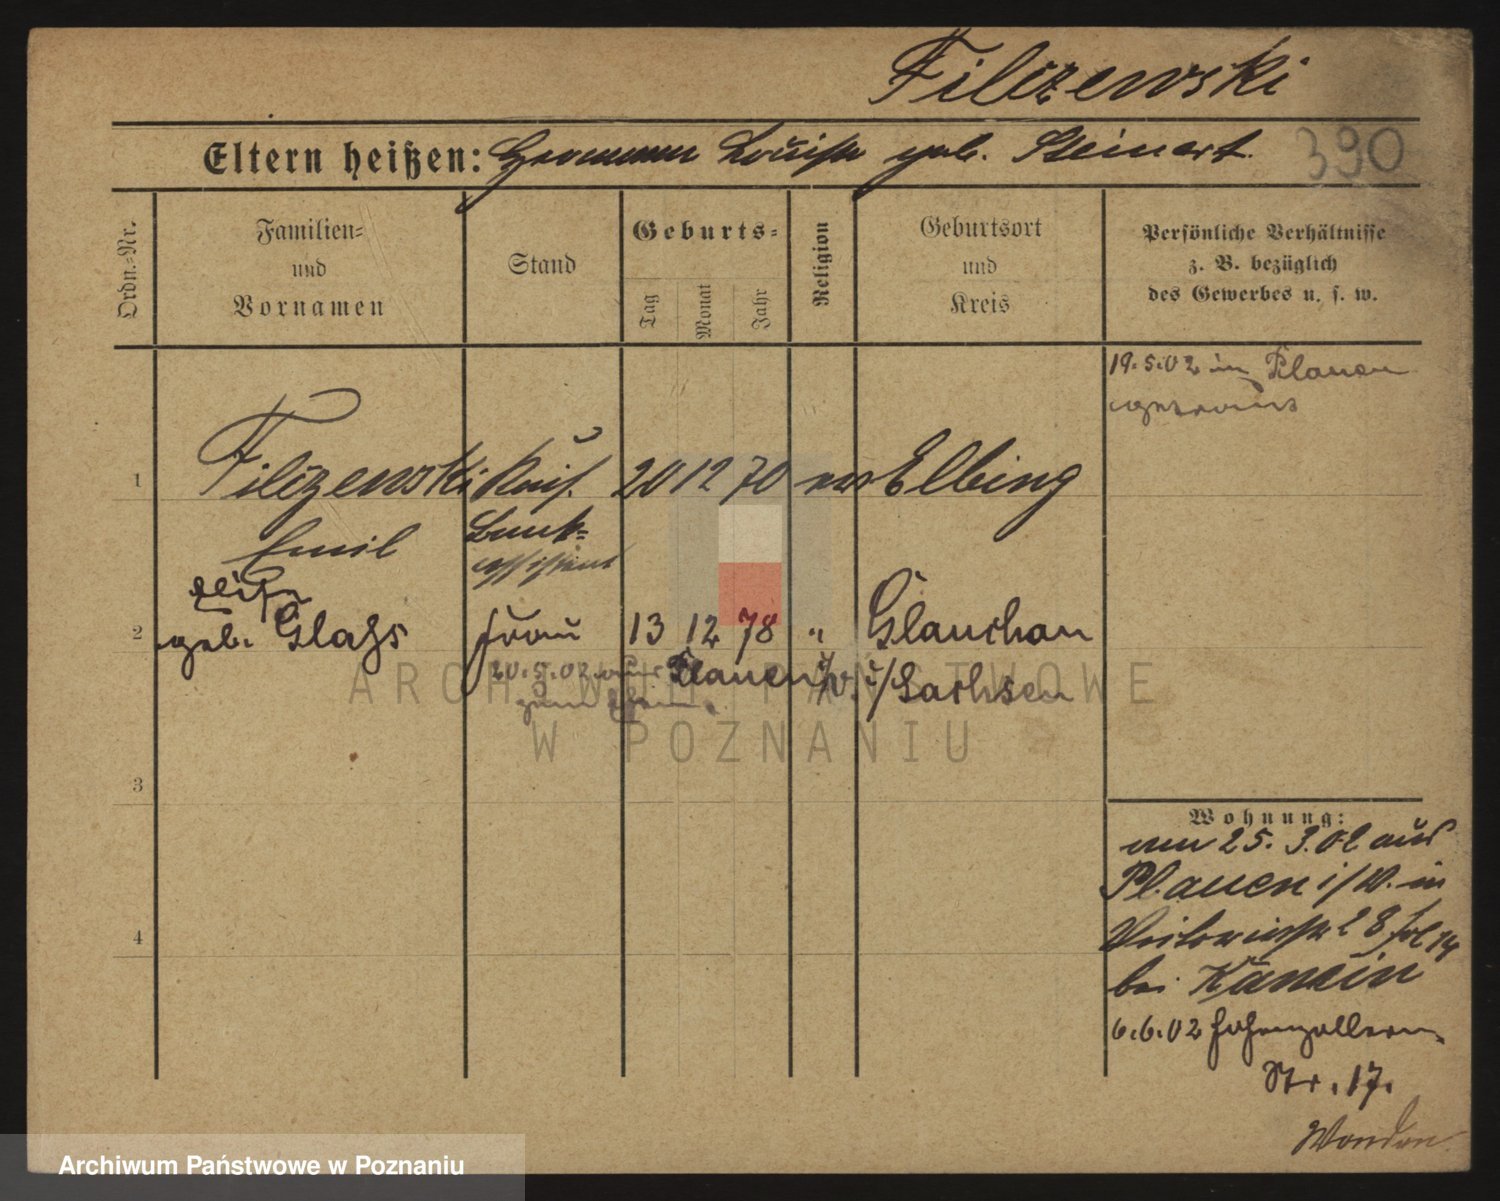 Filizewski
Eltern heißen: Hermann Louise geb. Steinert.
390
Ordn.-Nr.
Familien- und Vornamen
Stand
Geburts-
Tag
Monat
Jahr
Religion
Geburtsort und Kreis
Persönliche Verhältnisse
z. B. bezüglich
des Gewerbes u. s. w.
19.5.02 in Plauen
getraut
1 Filizewski Kauf. 20 12 70 ev Elbing
Emil Bank-
assistent
2 geb. Glass Frau 13 12 78 " Glauchau
20.5.02 aus Plauen i/V. i/Sachsen
3
4
Wohnung:
am 25. 3.02 aus
Plauen i/V. in
28
bei
6.6.02 Hohenzollern
Str. 17.
ARCHIWUM PAŃSTWOWE
W POZNANIU
Archiwum Państwowe w Poznaniu